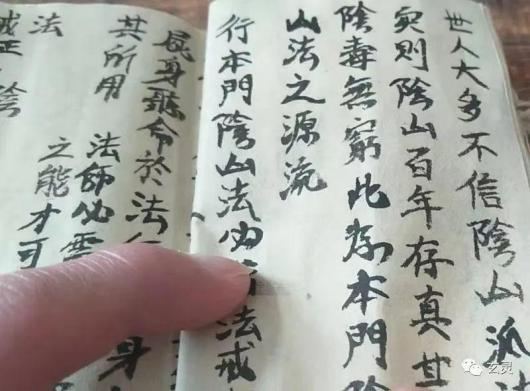 世人大多不信陰山派
实則陰山百年存真
陰毒無窮此為本門陰
山法之源流
行本門陰山法必法戒
屈身聽命於法
其所用 法師必身
法 之能才可
陰
玄灵